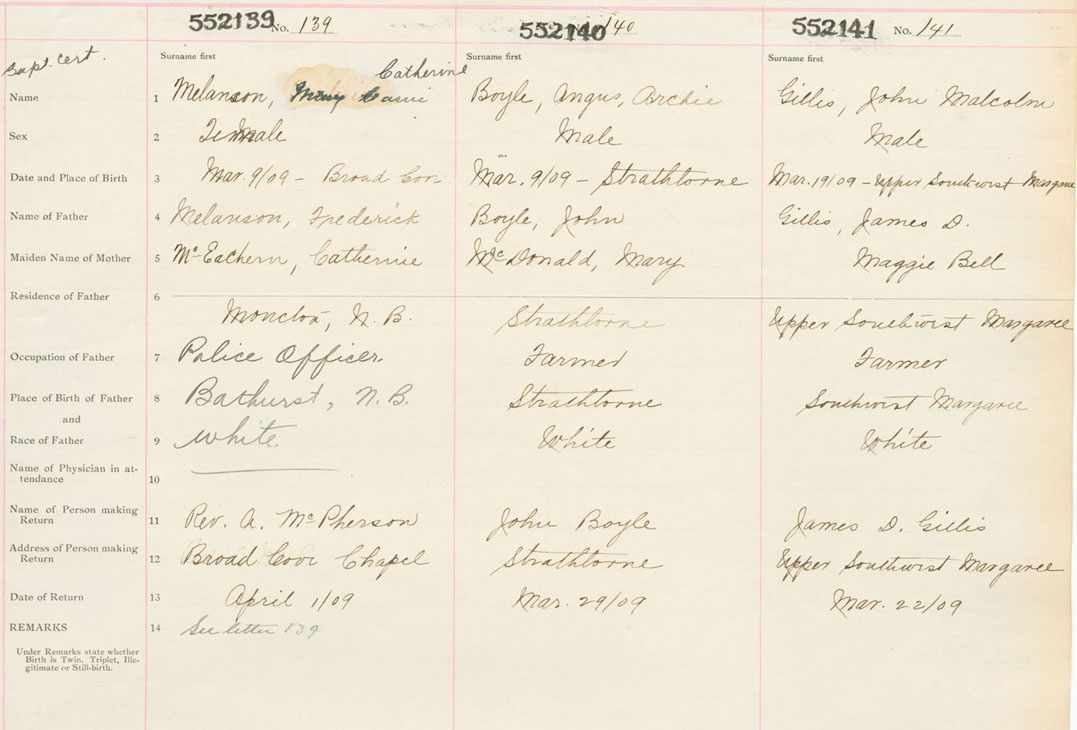 552139 No. 139 552140 140 552141 No. 141
Bapt. Cert. Surname first Surname first Surname first
Catherine
Name 1 Melanson, Mary Boyle, Angus, Archie Gillis, John Malcolm
Sex 2 Female Male Male
Date and Place of Birth 3 Mar. 9/09 - Broad Cove Mar. 9/09 - Strathlorne Mar. 19/09 - Upper Southwest Margaree
Name of Father 4 Melanson, Frederick Boyle, John Gillis, James D.
Maiden Name of Mother 5 McEachern, Catherine McDonald, Mary Maggie Bell
Residence of Father 6
Moncton, N. B. Strathlorne Upper Southwest Margaree
Occupation of Father 7 Police Officer. Farmer Farmer
Place of Birth of Father 8 Bathurst, N. B. Strathlorne Southwest Margaree
and
Race of Father 9 White White White
Name of Physician in at-
tendance 10
Name of Person making
Return 11 Rev. A. McPherson John Boyle James D. Gillis
Address of Person making
Return 12 Broad Cove Chapel Strathlorne Upper Southwest Margaree
Date of Return 13 April 1/09 Mar. 29/09 Mar. 22/09
REMARKS 14 See letter 139
Under Remarks state whether
Birth is Twin, Triplet, Ille-
gitimate or Still-birth.